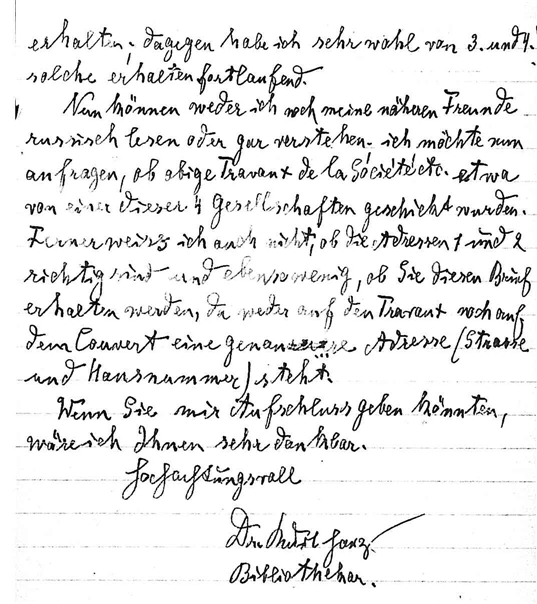 erhalten; dagegen habe ich sehr wohl von 3. und 4.
solche erhalten fortlaufend.
Nun können weder ich noch meine näheren Freunde
russisch lesen oder gar verstehen. ich möchte nun
anfragen, ob obige Travaux de la Société etc. etwa
von einer dieser 4 Gesellschaften geschickt wurden.
Ferner weiss ich auch nicht, ob die Adressen 1 und 2
richtig sind und ebensowenig, ob Sie diesen Brief
erhalten werden, da weder auf den Travaux noch auf
dem Couvert eine genauere Adresse (Strasse
und Hausnummer) steht.
Wenn Sie mir Aufschluss geben könnten,
wäre ich Ihnen sehr dankbar.
Hochachtungsvoll
Dr.
Bibliothekar.